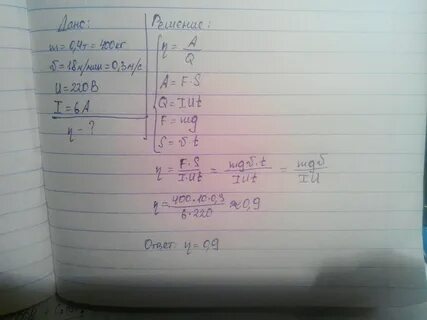 Дано:
m = 0,4т = 400кг
υ = 18м/мин = 0,3м/с
U = 220В
I = 6А
η - ?
Решение:
η = A/Q
A = F·S
Q = IUt
F = mg
S = υ·t
η = F·S/I·Ut = mgυ·t/IUt = mgυ/IU
η = 400·10·0,3/6·220 ≈ 0,9
Ответ: η = 0,9